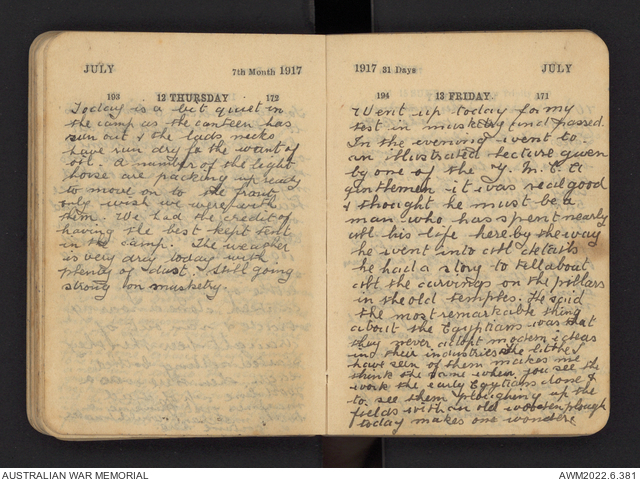 JULY
7th Month 1917
193 12 THURSDAY 172
Today is a bit quiet in
the camp as the canteen has
run out & the lads necks
have run dry for the want of
oil. A number of the light
horse are packing up ready
to move on to the front
only wish we were with
them. We had the credit of
having the best kept tent
in the camp. The weather
is very dry today with
plenty of dust. Still going
strong on musketry.
1917 31 Days
JULY
194 13 FRIDAY 171
Went up today for my
test in musketry and passed.
In the evening went to
an illustrated lecture given
by one of the Y. M. C. A
gentlemen it was real good
& thought he must be a
man who has spent nearly
all his life here by the way
he went into all details
he had a story to tell about
all the carvings on the pillars
in the old temples. He said
the most remarkable thing
about the Egyptians was that
they never adopt modern ideas
in their industries the little I
have seen of them makes me
think the same when you see the
work the early Egyptians done &
to see them ploughing up the
fields with an old wooden plough
today makes one wonder
AUSTRALIAN WAR MEMORIAL
AWM2022.6.381